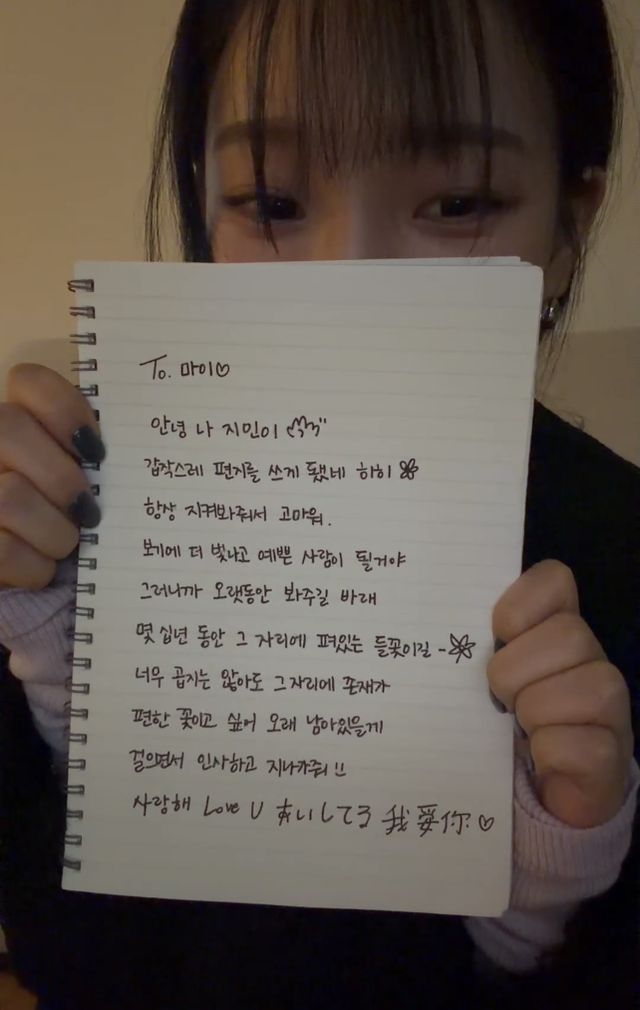 To. 마이♡
안녕 나 지민이
갑작스레 편지를 쓰게 됐네 하히
항상 지켜봐줘서 고마워.
보기에 더 빛나고 예쁜 사람이 될거야
그러니까 오랫동안 봐주길 바래
몇 십년 동안 그 자리에 펴있는 들꽃이길 -
너무 곱지는 않아도 그자리에 존재가
편한 꽃이고 싶어 오래 남아있을게
걸으면서 인사하고 지나가줘!!
사랑해 Love U あいしてる 我爱你 ♡